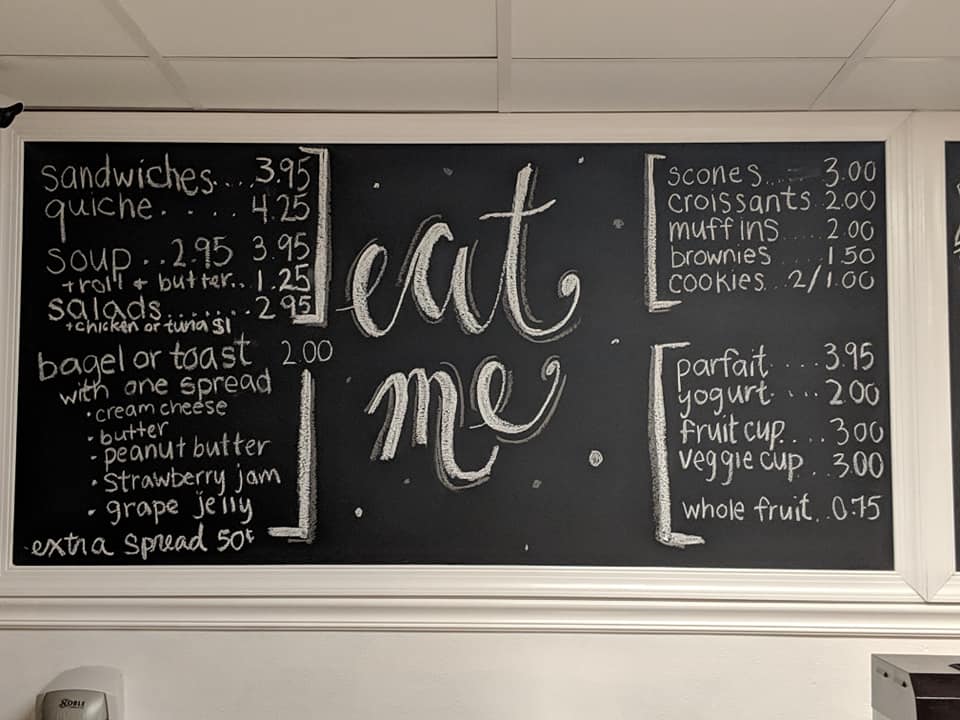 sandwiches....3.95
quiche.....4.25
soup..2.95 3.95
+roll + butter..1.25
salads.......2.95
+chicken or tuna $1
bagel or toast 2.00
with one spread
• cream cheese
• butter
• peanut butter
• Strawberry jam
• grape jelly
extra spread 50¢
eat
me
scones....3.00
croissants 2.00
muffins....2.00
brownies....1.50
cookies...2/1.00
parfait....3.95
yogurt....2.00
fruit cup....3.00
veggie cup..3.00
whole fruit..0.75
NOBLE